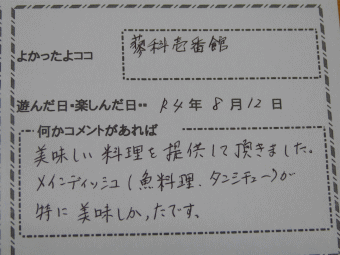 よかったよココ
蓼科壱番館
遊んだ日・楽しんだ日・・ R4年8月12日
何かコメントがあれば
美味しい料理を提供して頂きました。
メインディッシュ(魚料理、タンシチュー)が
特に美味しかったです。